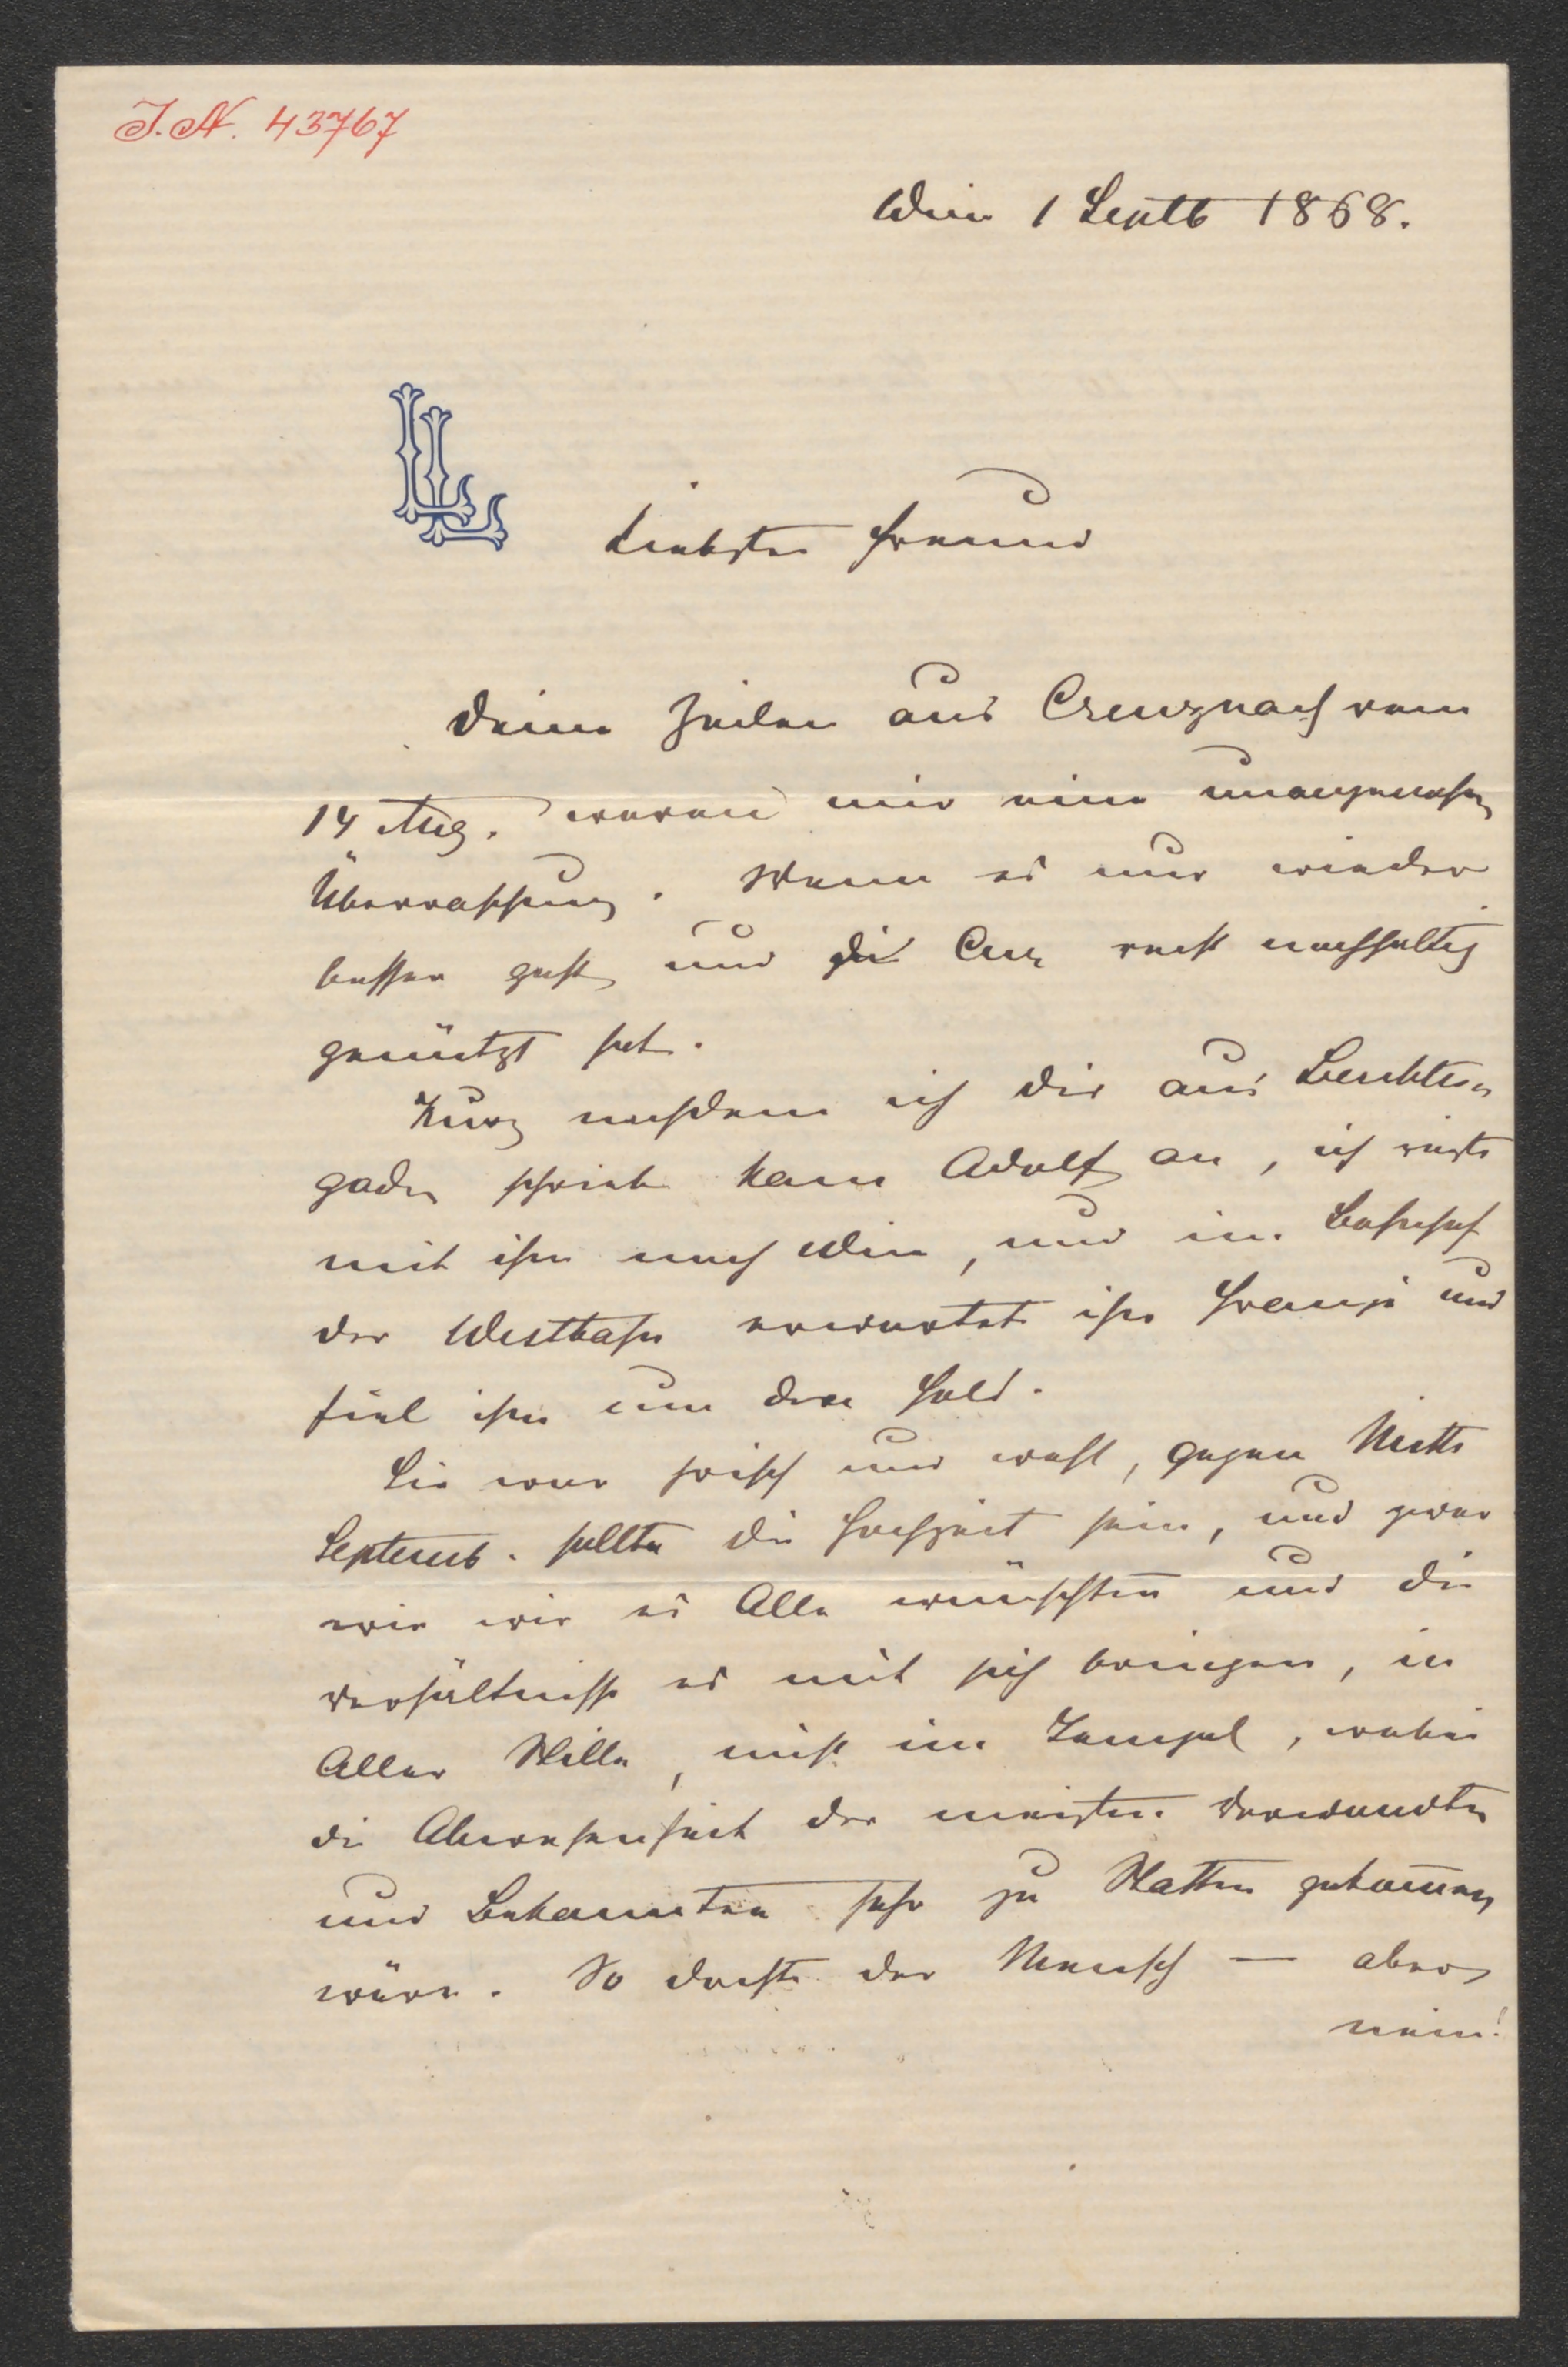 J.N. 43767
Wien 1 Septb 1868.
LL
Liebster Freund
Deine Zeilen aus Creuznach vom
14 Aug. waren mir eine unangenehme
Überraschung. Wenn es nur wieder
besser geht, und die Cur recht nachhaltig
genützt hat.
Kurz nachdem ich Dir aus Berchtes-
gaden schrieb kam Adolf an, ich reiste
mit ihm nach Wien, und im Bahnhof
der Westbahn erwartete ihn Franzi und
fiel ihm um den Hals.
Sie war frisch und wohl, gegen Mitte
Septemb. sollte die Hochzeit sein, und zwar
wie wir es Alle wünschten und die
Verhältnisse es mit sich bringen, in
Aller Stille, nicht im Tempel, wobei
die Abwesenheit der meisten Verwandten
und Bekannten sehr zu Statten gekommen
wäre. So dachte der Mensch — aber
nein!